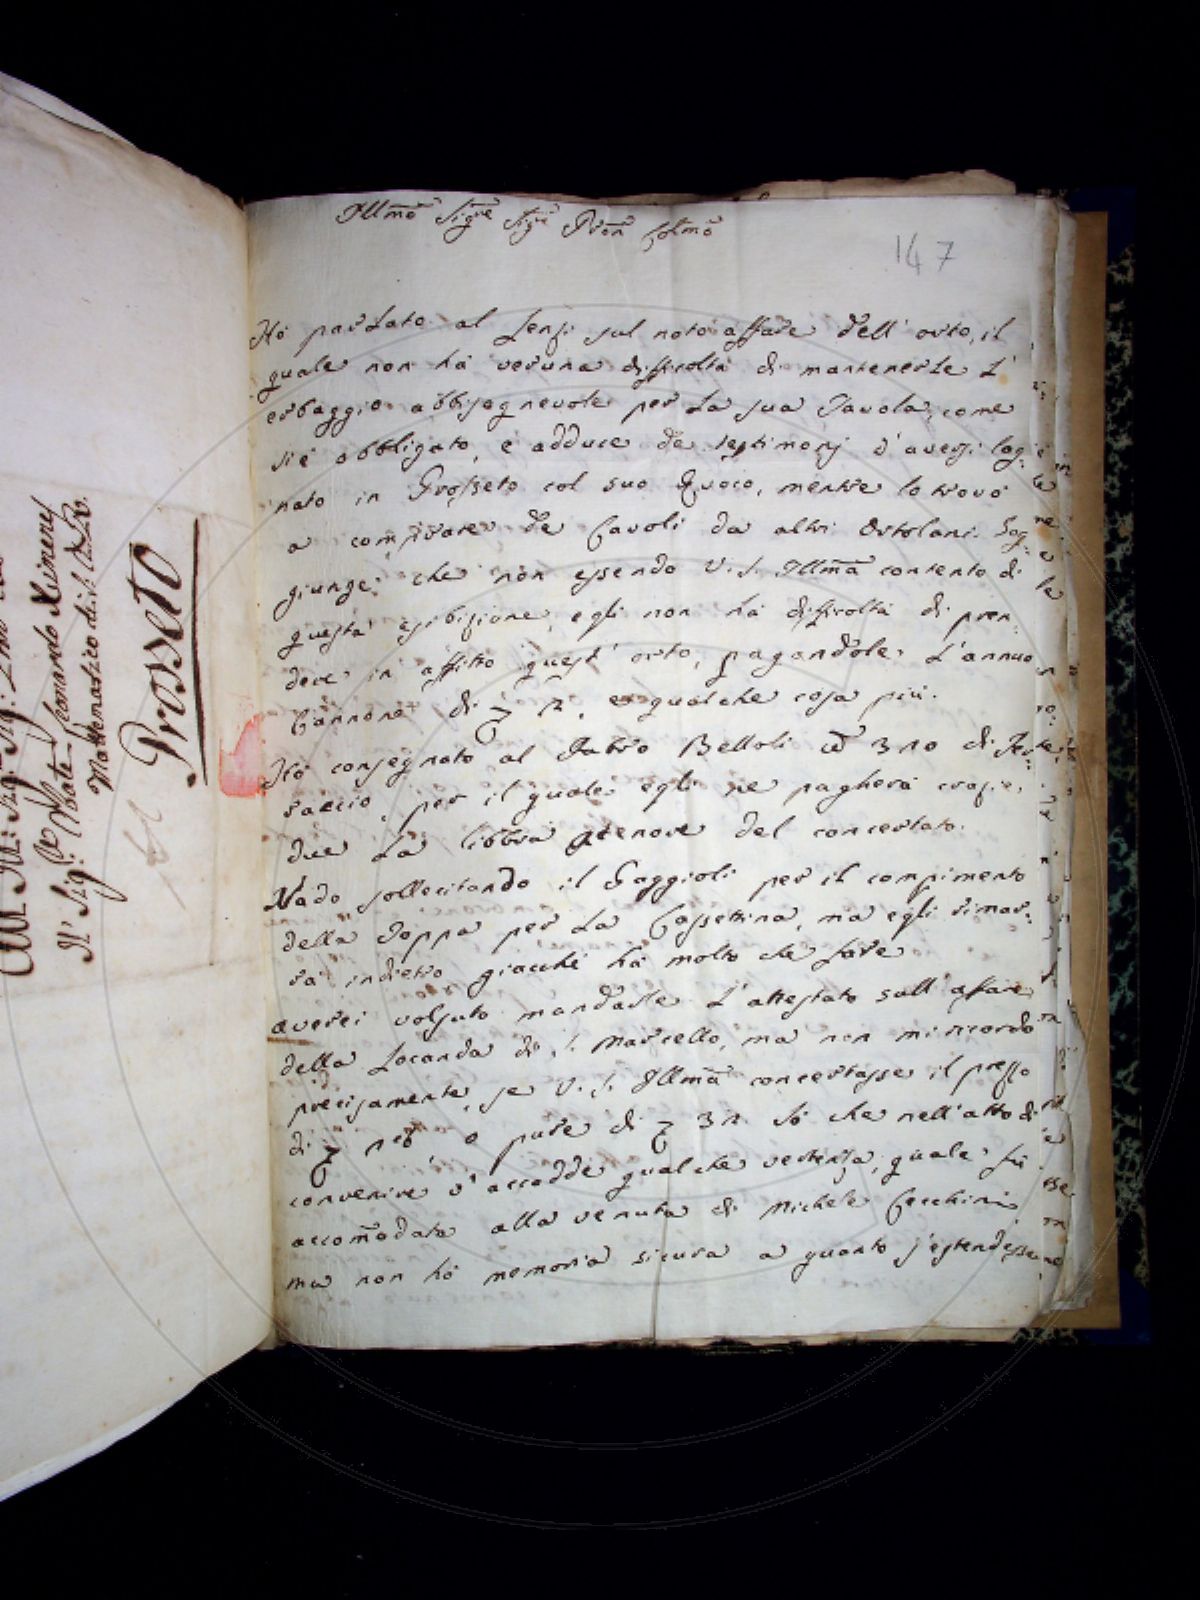 Illmõ Sigre Sigre Pron Colmõ
147
Hò parlato al Lenzi sul noto affare dell'orto, il
quale non hà veruna difficoltà di mantenerle l'
erbaggio abbisognevole per la sua Tavola, come
si è obbligato, e adduce de testimonj d'aversi lag:
nato in Grosseto col suo Quoco, mentre lo trovò
a comprare de Cavoli da altri Ortolani. Sog:
giunge che non essendo V. S. Illmã contento di
questa esibizione, egli non hà difficoltà di pren:
dere in affitto quest'orto, pagandole l'annuo
Cannone di 12, e qualche cosa più.
Hò consegnato al Fabro Belloli 310 di Fer:
raccio, per il quale egli ne pagherà crazie
due la libbra a tenore del concertato.
Vado sollecitando il Faggioli per il compimento
della Toppa per la Cassettina, ma egli rimar:
rà indietro giacchè hà molto che fare
averei volsuto mandarle l'attestato sull'affare
della Locanda di S. Marcello, ma non mi ricordo
precisamente, se V. S. Illmã concertasse il prezzo
di o pure di 32. Sò che nell'atto di
convenire v'accadde qualche vertenza, quale fù
accomõdata alla venuta di Michele Cecchini
ma non hò memoria sicura a quanto s'estendesse
Al Sig: Abate Leonardo Ximenes
Mattematico di S. M.
Grosseto